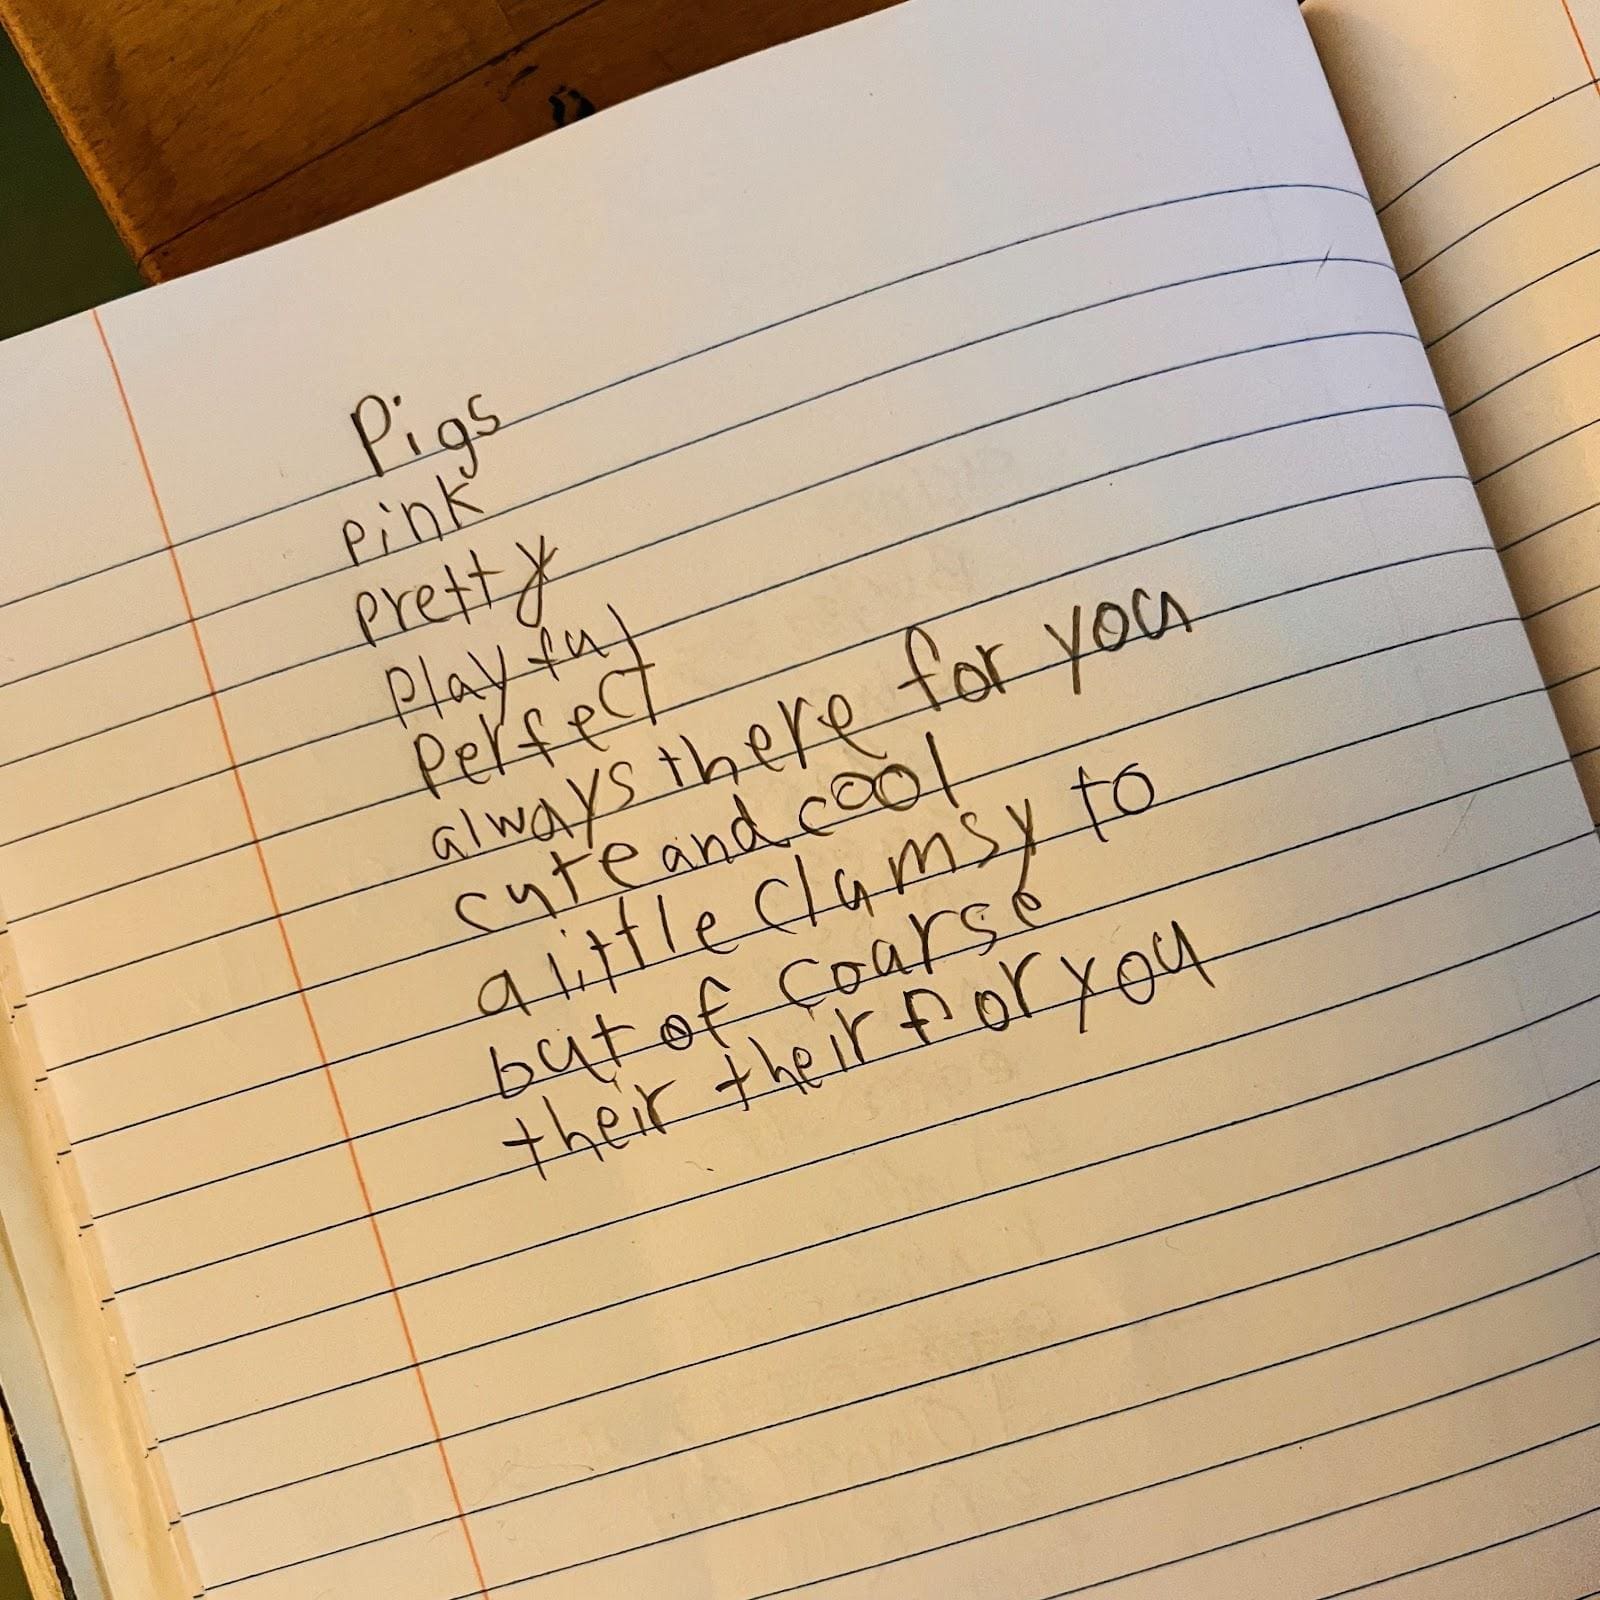 Pigs
pink
pretty
playful
perfect
always there for you
cute and cool
a little clumsy to
but of coarse
their their for you